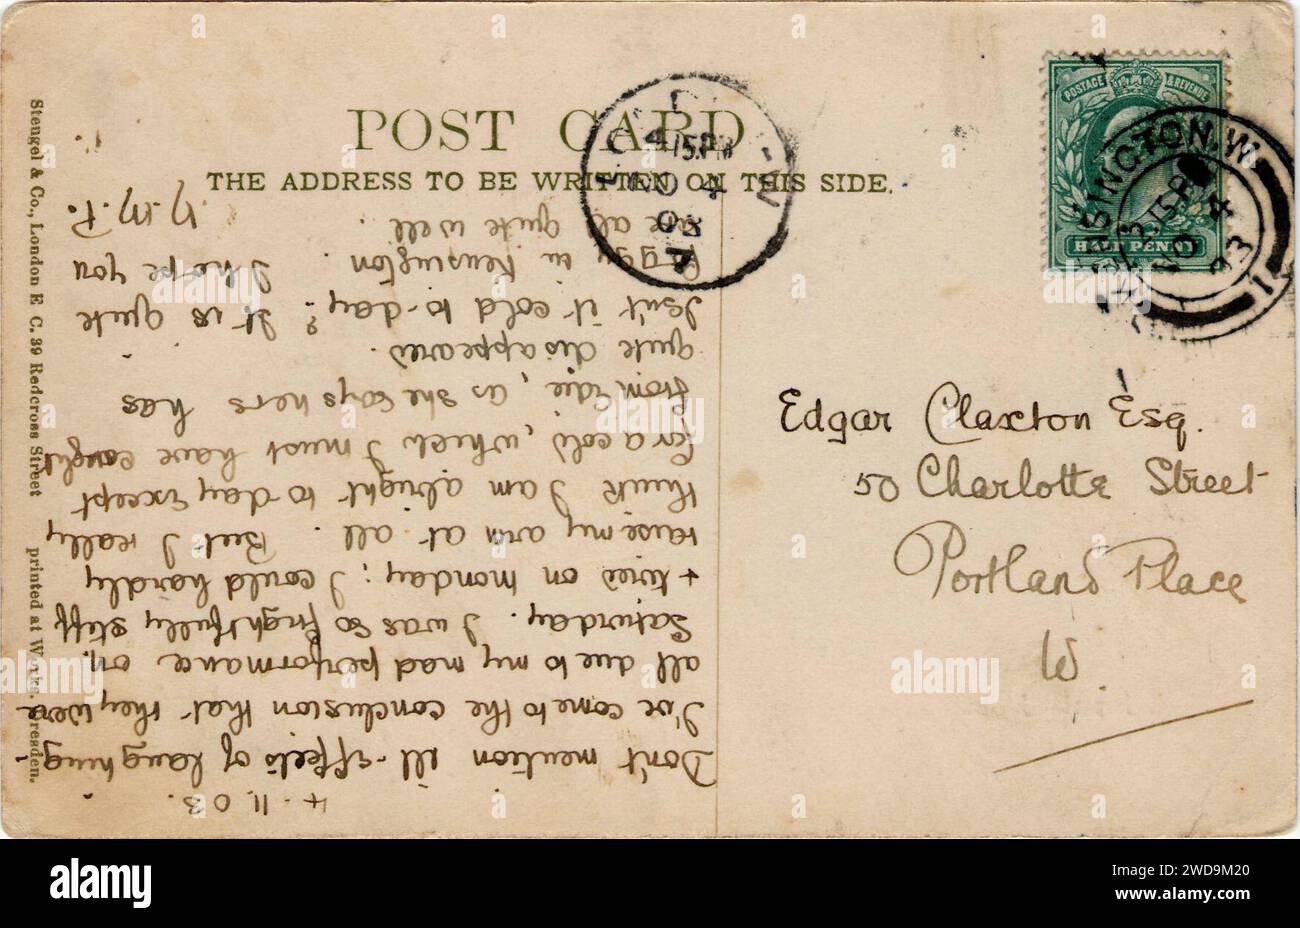 POST CARD
THE ADDRESS TO BE WRITTEN ON THIS SIDE.
Stengel & Co., London E. C. 39 Redcross Street printed at Works, Dresden.
POSTAGE & REVENUE
HALF PENNY
KENSINGTON.W.
3.15 PM
NO 4
03
1
4.15 PM
NO 4
03
4.11.03.
Don't mention ill-effects of laughing
I've come to the conclusion that they were
all due to my mad performance on
Saturday. I was so frightfully stiff
+ tired on Monday; I could hardly
raise my arm at all. But I really
think I am alright to-day except
for a cold, which I must have caught
from Edie, as she says hers has
quite disappeared.
Isn't it cold to-day? It is quite
foggy in Kensington. I hope you
are all quite well.
Edgar Claxton Esq.
50 Charlotte Street
Portland Place
W.
alamy
Image ID: 2WD9M20
www.alamy.com